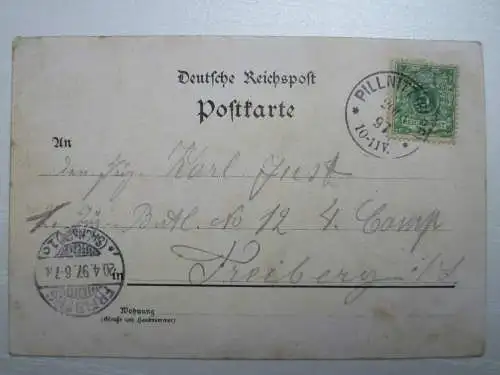 Deutsche Reichspost
Postkarte
PILLNITZ
97
10-11V.
An
den Jäg. Karl Just
Jäg. Batl. No 12 4. Comp
Freiberg i/S.
in
FREIBERG
(SACHSEN)
20.4.97.6-7
Wohnung
(Straße und Hausnummer)